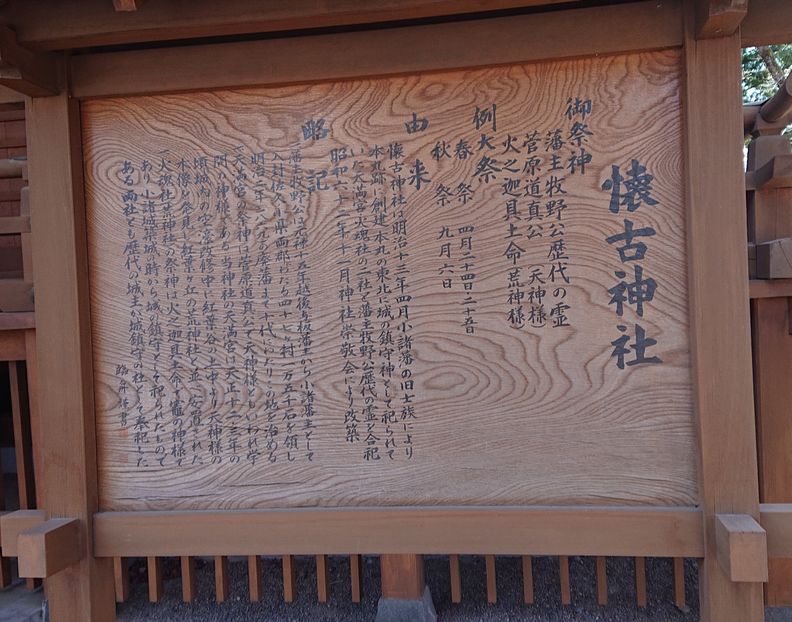 懐古神社
御祭神
藩主牧野公歴代の霊
菅原道真公(天神様)
火之迦具土命(荒神様)
例大祭
春祭 四月二十四日二十五日
秋祭 九月六日
由来
懐古神社は明治十三年四月小諸藩の旧士族により
本丸跡に創建本丸の東北に城の鎮守神として祀られて
いた天満宮火魂社の二社と藩主牧野公歴代の霊を合祀
昭和六十二年十一月神社崇敬会により改築
略記
一藩主牧野公は元禄十五年越後与板藩主から小諸藩主として
入封佐久小県両郡わたり四十七ヶ村一万五千石を領し
明治二年の廃藩まで十代にわたりこの地を治める
一天満宮の祭神は菅原道真公で天神様ともいわれ学
問の神様である当神社の天満宮は天正十二三年の
頃城内の空濠改修中に紅葉谷の土中より天神様の
木像を発見し紅葉ヶ丘の荒神社と並べ安置された
一火魂社荒神社の祭神は火之迦具土命で竈の神様で
あり小諸城築城の時から城の鎮守として祀られたもので
ある両社とも歴代の城主が城鎮守の社として奉祀した